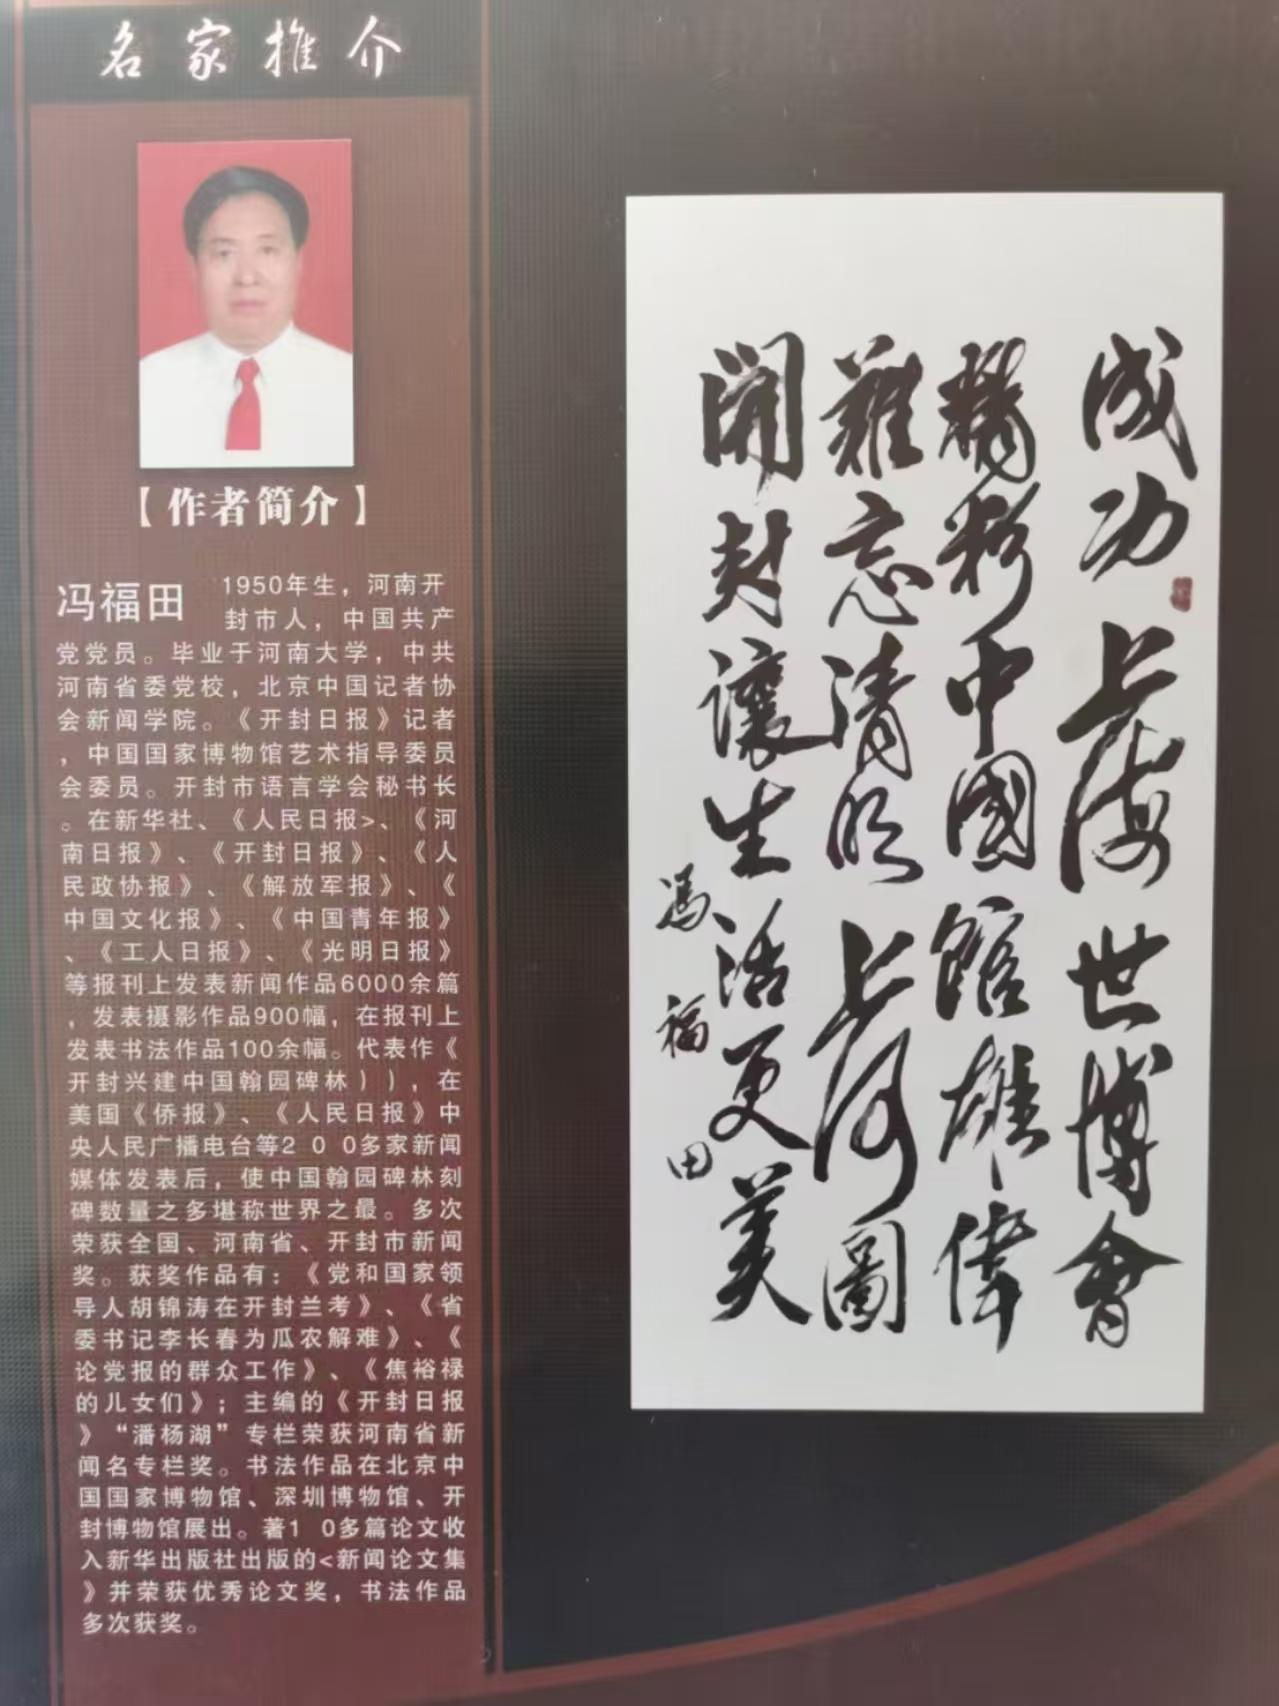 名家推介
【作者简介】
冯福田
1950年生，河南开
封市人，中国共产
党党员。毕业于河南大学，中共
河南省委党校，北京中国记者协
会新闻学院。《开封日报》记者
，中国国家博物馆艺术指导委员
会委员。开封市语言学会秘书长
。在新华社、《人民日报>、《河
南日报》、《开封日报》、《人
民政协报》、《解放军报》、《
中国文化报》、《中国青年报》
、《工人日报》、《光明日报》
等报刊上发表新闻作品6000余篇
，发表摄影作品900幅，在报刊上
发表书法作品100余幅。代表作《
开封兴建中国翰园碑林）），在
美国《侨报》、《人民日报》中
央人民广播电台等2 0 0多家新闻
媒体发表后，使中国翰园碑林刻
碑数量之多堪称世界之最。多次
荣获全国、河南省、开封市新闻
奖。获奖作品有：《党和国家领
导人胡锦涛在开封兰考》、《省
委书记李长春为瓜农解难》、《
论党报的群众工作》、《焦裕禄
的儿女们》；主编的《开封日报
》“潘杨湖”专栏荣获河南省新
闻名专栏奖。书法作品在北京中
国国家博物馆、深圳博物馆、开
封博物馆展出。著1 0多篇论文收
入新华出版社出版的<新闻论文集
》并荣获优秀论文奖，书法作品
多次获奖。
成功上海世博會
精彩中國館雄偉
難忘清明上河圖
開封讓生活更美
馮福田